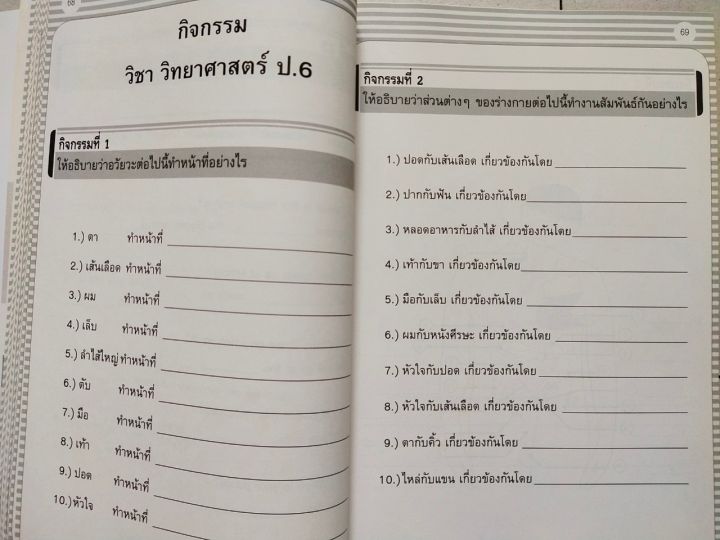 68
กิจกรรม
วิชา วิทยาศาสตร์ ป.6
กิจกรรมที่ 1
ให้อธิบายว่าอวัยวะต่อไปนี้ทำหน้าที่อย่างไร
1.) ตา ทำหน้าที่
2.) เส้นเลือด ทำหน้าที่
3.) ผม ทำหน้าที่
4.) เล็บ ทำหน้าที่
5.) ลำไส้ใหญ่ ทำหน้าที่
6.) ตับ ทำหน้าที่
7.) มือ ทำหน้าที่
8.) เท้า ทำหน้าที่
9.) ปอด ทำหน้าที่
10.) หัวใจ ทำหน้าที่
69
กิจกรรมที่ 2
ให้อธิบายว่าส่วนต่างๆ ของร่างกายต่อไปนี้ทำงานสัมพันธ์กันอย่างไร
1.) ปอดกับเส้นเลือด เกี่ยวข้องกันโดย
2.) ปากกับฟัน เกี่ยวข้องกันโดย
3.) หลอดอาหารกับลำไส้ เกี่ยวข้องกันโดย
4.) เท้ากับขา เกี่ยวข้องกันโดย
5.) มือกับเล็บ เกี่ยวข้องกันโดย
6.) ผมกับหนังศีรษะ เกี่ยวข้องกันโดย
7.) หัวใจกับปอด เกี่ยวข้องกันโดย
8.) หัวใจกับเส้นเลือด เกี่ยวข้องกันโดย
9.) ตากับคิ้ว เกี่ยวข้องกันโดย
10.) ไหล่กับแขน เกี่ยวข้องกันโดย